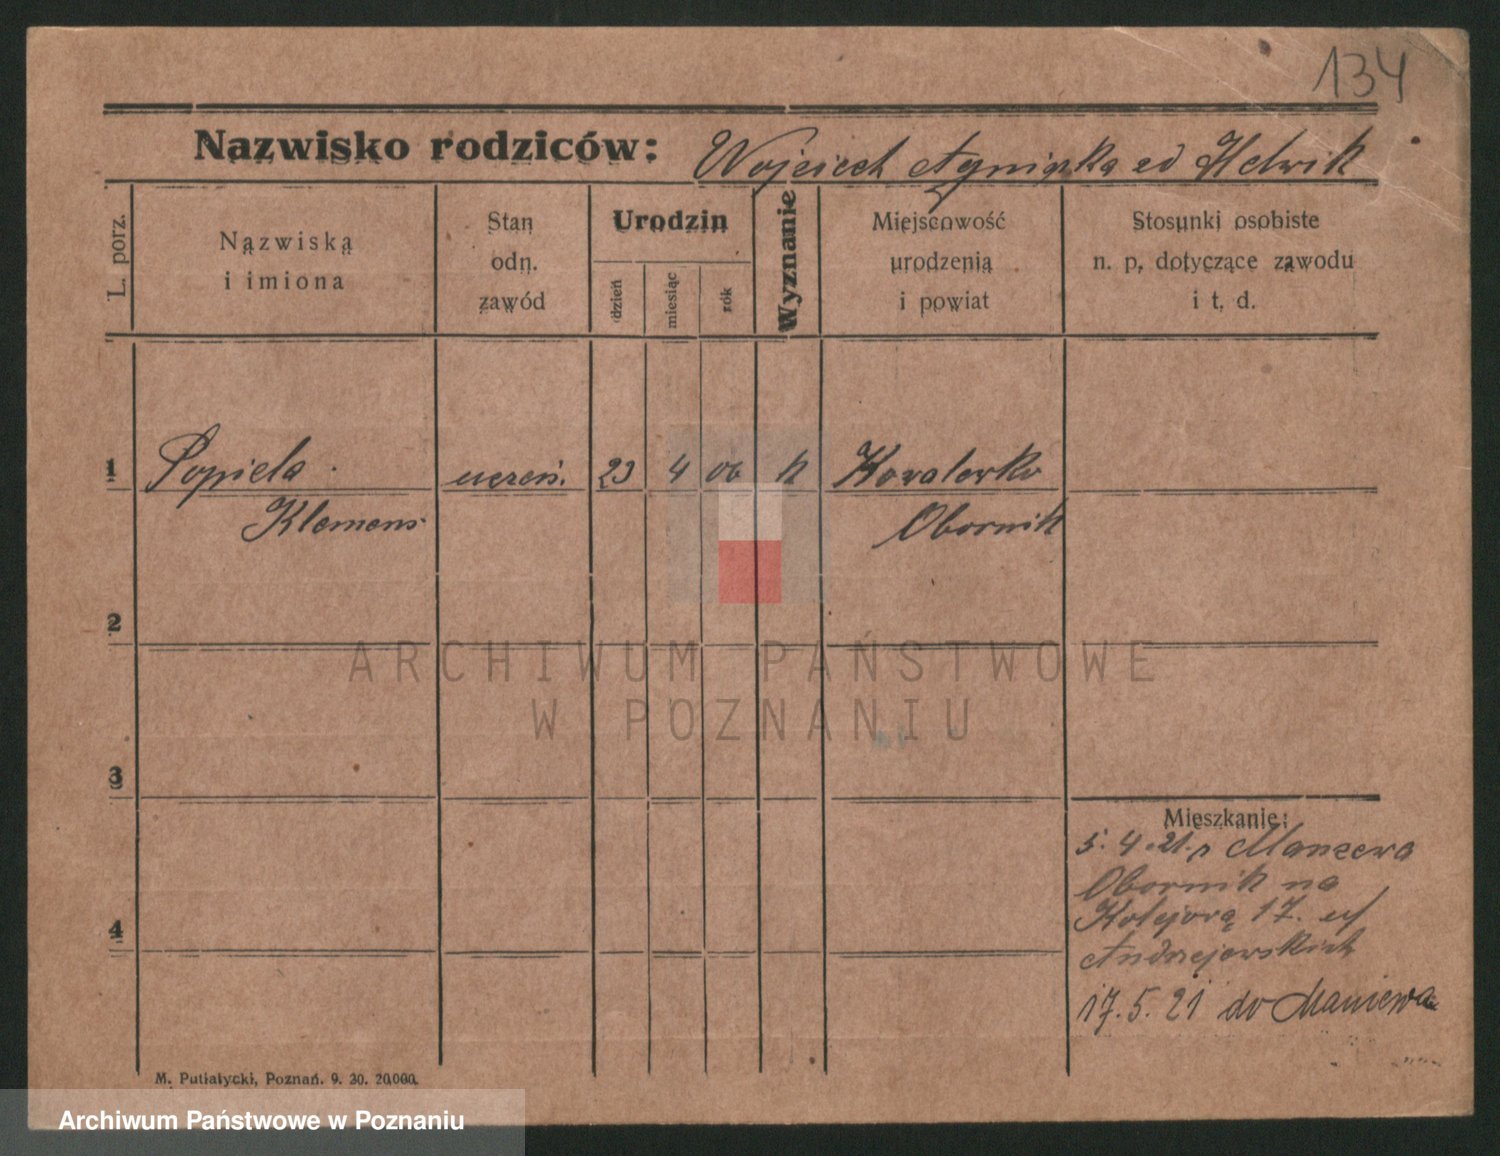 134
Nazwisko rodziców: Wojciech Agniszka zd Helwik
L. porz.
Nazwiska
i imiona
Stan
odn.
zawód
Urodzin
dzień
miesiąc
rok
Wyznanie
Miejscowość
urodzenia
i powiat
Stosunki osobiste
n. p. dotyczące zawodu
i t. d.
1 Popiela uczeń. 23 4 06 k Kowalewko
Klemens Obornik
2
ARCHIWUM PAŃSTWOWE
W POZNANIU
3
Mieszkanie:
5. 4. 21. Maniewa
Obornik na
Kolejową 17. u/
4
Andrzejewskich
17. 5. 21 do Maniewa
M. Putiatycki, Poznań. 9. 20. 20,000.
Archiwum Państwowe w Poznaniu